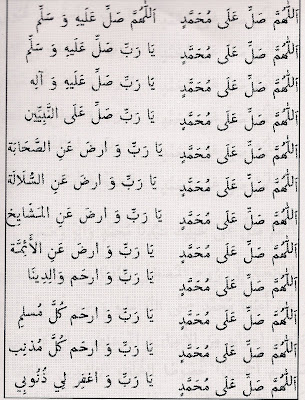 اَللّٰهُمَّ صَلِّ عَلَى مُحَمَّدٍ اَللّٰهُمَّ صَلِّ عَلَيهِ وَ سَلِّم
اَللّٰهُمَّ صَلِّ عَلَى مُحَمَّدٍ يَا رَبِّ صَلِّ عَلَيهِ وَ سَلِّم
اَللّٰهُمَّ صَلِّ عَلَى مُحَمَّدٍ يَا رَبِّ صَلِّ عَلَيهِ وَ آلِه
اَللّٰهُمَّ صَلِّ عَلَى مُحَمَّدٍ يَا رَبِّ صَلِّ عَلَى النَّبِيِّين
اَللّٰهُمَّ صَلِّ عَلَى مُحَمَّدٍ يَا رَبِّ وَ ارضَ عَنِ الصَّحَابَة
اَللّٰهُمَّ صَلِّ عَلَى مُحَمَّدٍ يَا رَبِّ وَ ارضَ عَنِ السُّلَالَة
اَللّٰهُمَّ صَلِّ عَلَى مُحَمَّدٍ يَا رَبِّ وَ ارضَ عَنِ المَشَايِخ
اَللّٰهُمَّ صَلِّ عَلَى مُحَمَّدٍ يَا رَبِّ وَ ارضَ عَنِ الأَئِمَّة
اَللّٰهُمَّ صَلِّ عَلَى مُحَمَّدٍ يَا رَبِّ وَ ارحَم وَالِدِينَا
اَللّٰهُمَّ صَلِّ عَلَى مُحَمَّدٍ يَا رَبِّ وَ ارحَم كُلَّ مُسلِمٍ
اَللّٰهُمَّ صَلِّ عَلَى مُحَمَّدٍ يَا رَبِّ وَ ارحَم كُلَّ مُذنِب
اَللّٰهُمَّ صَلِّ عَلَى مُحَمَّدٍ يَا رَبِّ وَ اغفِر لِي ذُنُوبِي